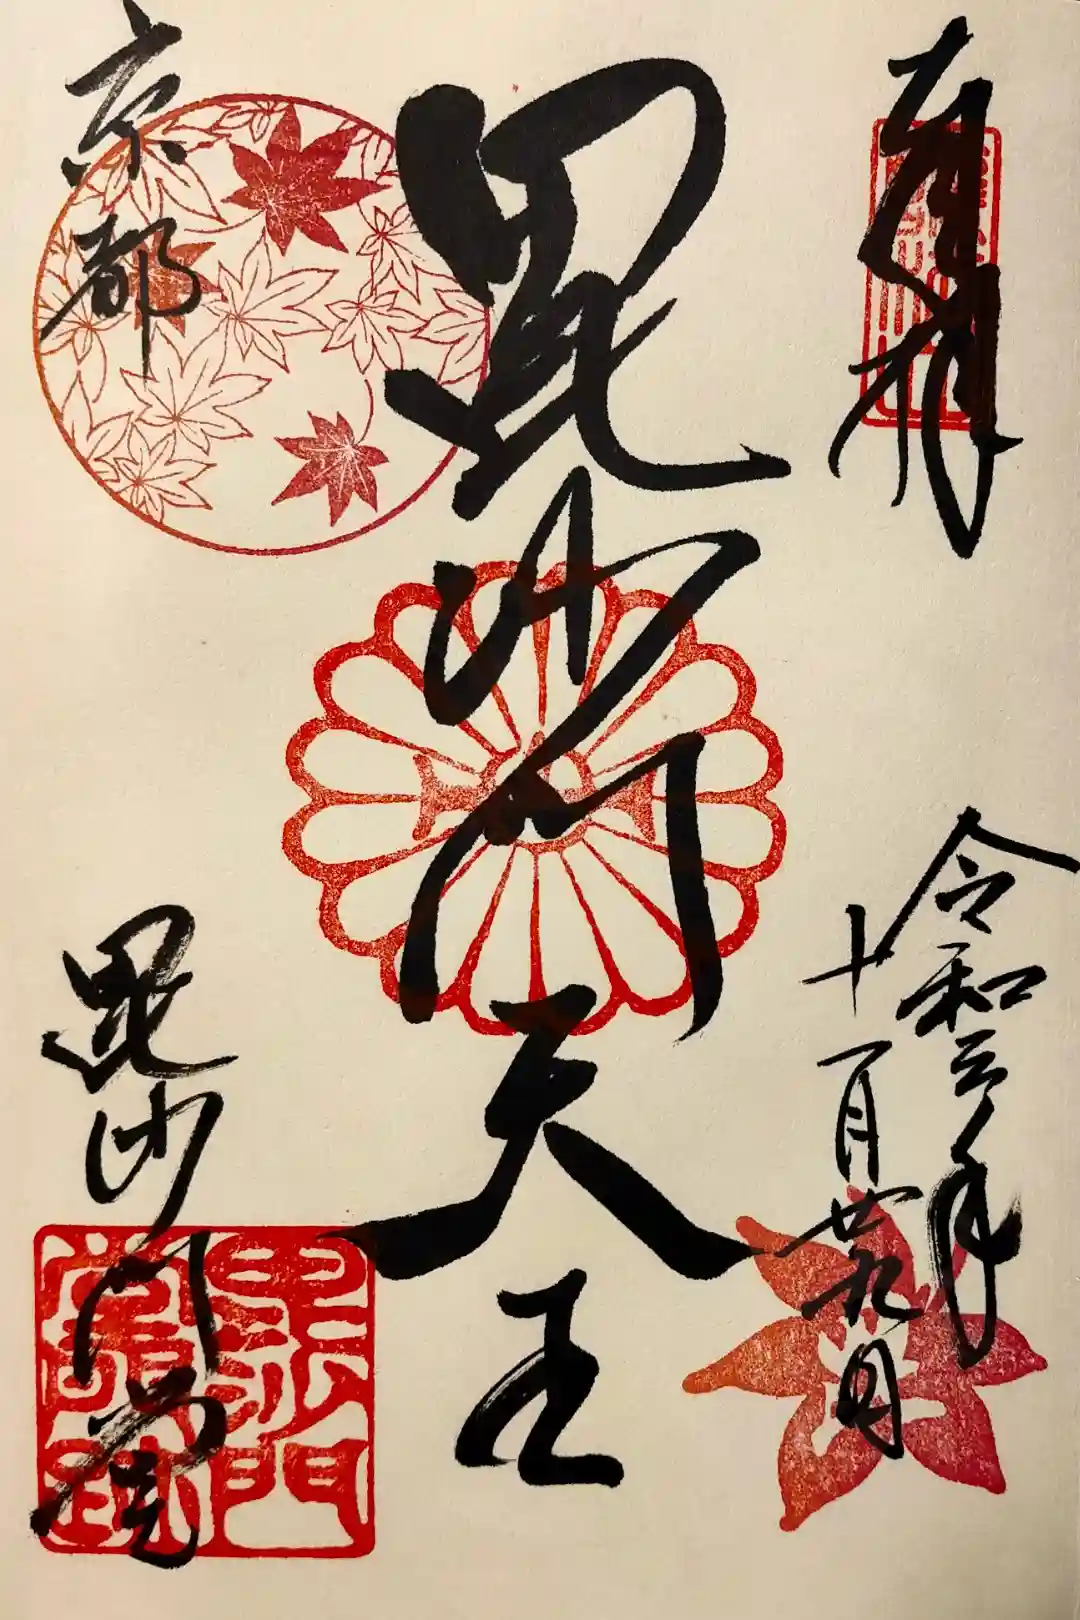 奉拝
令和三年
十一月廿九日
毘沙門天王
京都
毘沙門堂